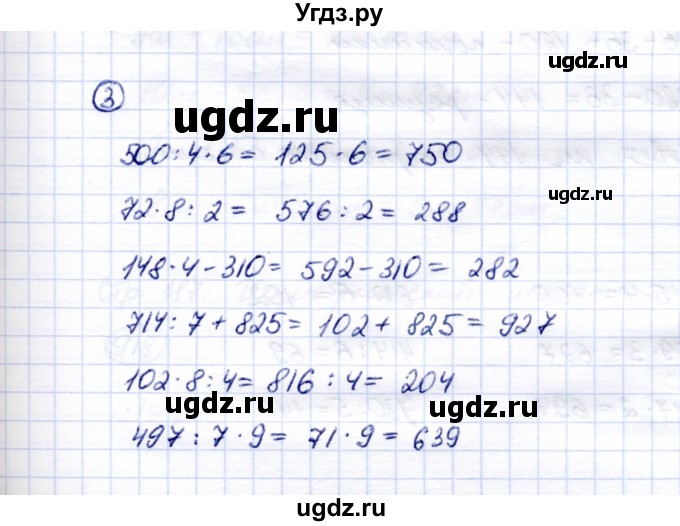 Угдз.ру
ugdz.ru
3
ugdz.ru
500:4·6= 125·6=750
ugdz.ru
72·8:2= 576:2= 288
148·4-310= 592-310= 282
714:7+825=102+825=927
102·8:4=816:4= 204
ugdz.ru ugdz.ru
497:7·9= 71·9=639
ugdz.ru